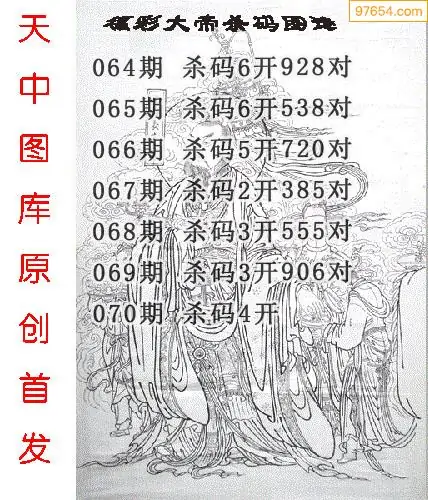 97654.com
福彩大帝杀码图走
天中图库原创首发
064期 杀码6开928对
065期 杀码6开538对
066期 杀码5开720对
067期 杀码2开385对
068期 杀码3开555对
069期 杀码3开906对
070期 杀码4开